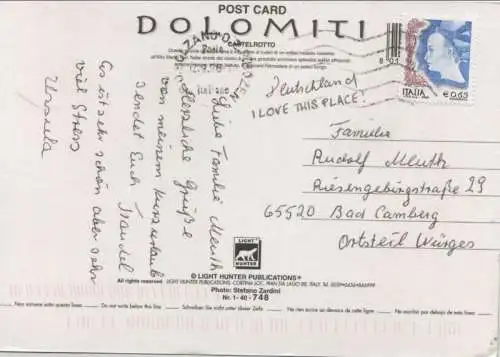 POST CARD
DOLOMITI
CASTELROTTO
ITALIA
€ 0,65
Deutschland
I LOVE THIS PLACE!
Liebe Familie Meuth
Herzliche Grüße
von meinem Kurzurlaub
sendet Euch Traudel
Es ist sehr schön aber sehr
viel Stress
Ursula
Familie
Rudolf Meuth
Riesengebirgstraße 29
65520 Bad Camberg
Ortsteil Würges
LIGHT
HUNTER
© LIGHT HUNTER PUBLICATIONS®
All rights reserved. LIGHT HUNTER PUBLICATIONS. CORTINA LOC.
Photo: Stefano Zardini
Nr. 1-40-748
Non scrivere sotto questa linea
Do not write below this line
Schreiben Sie nicht unter dieser Zeile
Ne rien écrire en dessous de cette ligne
No escribir por debajo de esta línea